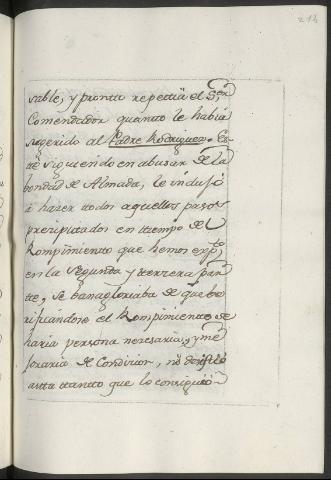 212
sable, y pronta repettia el S.or
Comendador quanto le havia
sugerido al Padre Rodriguez. Es-
te siguiendo en abusar de la
bondad de Almada, le indujo
á hazer todos aquellos pasos
precipitados en ttiempo de el
Rompimiento que hemos exp.to
en la segunda y terzera par-
tte, se banagloriaba de que be-
rificandose el Rompimiento se
haria persona nezesaria, y me-
joraria de Condizion, no desistio
astta ttantto que lo consiguió